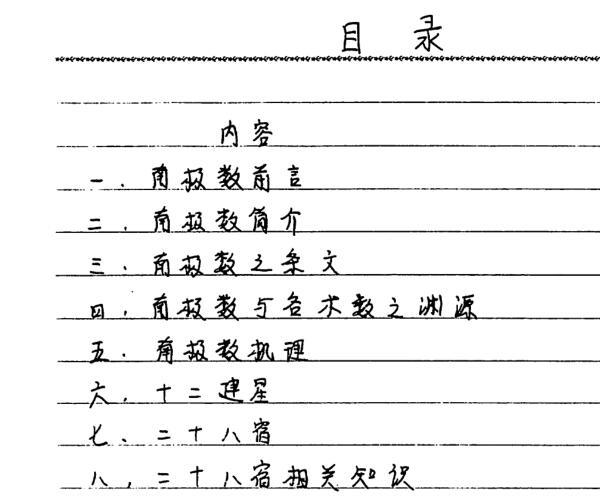 目 录
内容
一．南极数前言
二．南极数简介
三．南极数之条文
四．南极数与各术数之渊源
五．南极数机理
六．十二建星
七、二十八宿
八，二十八宿相关知识